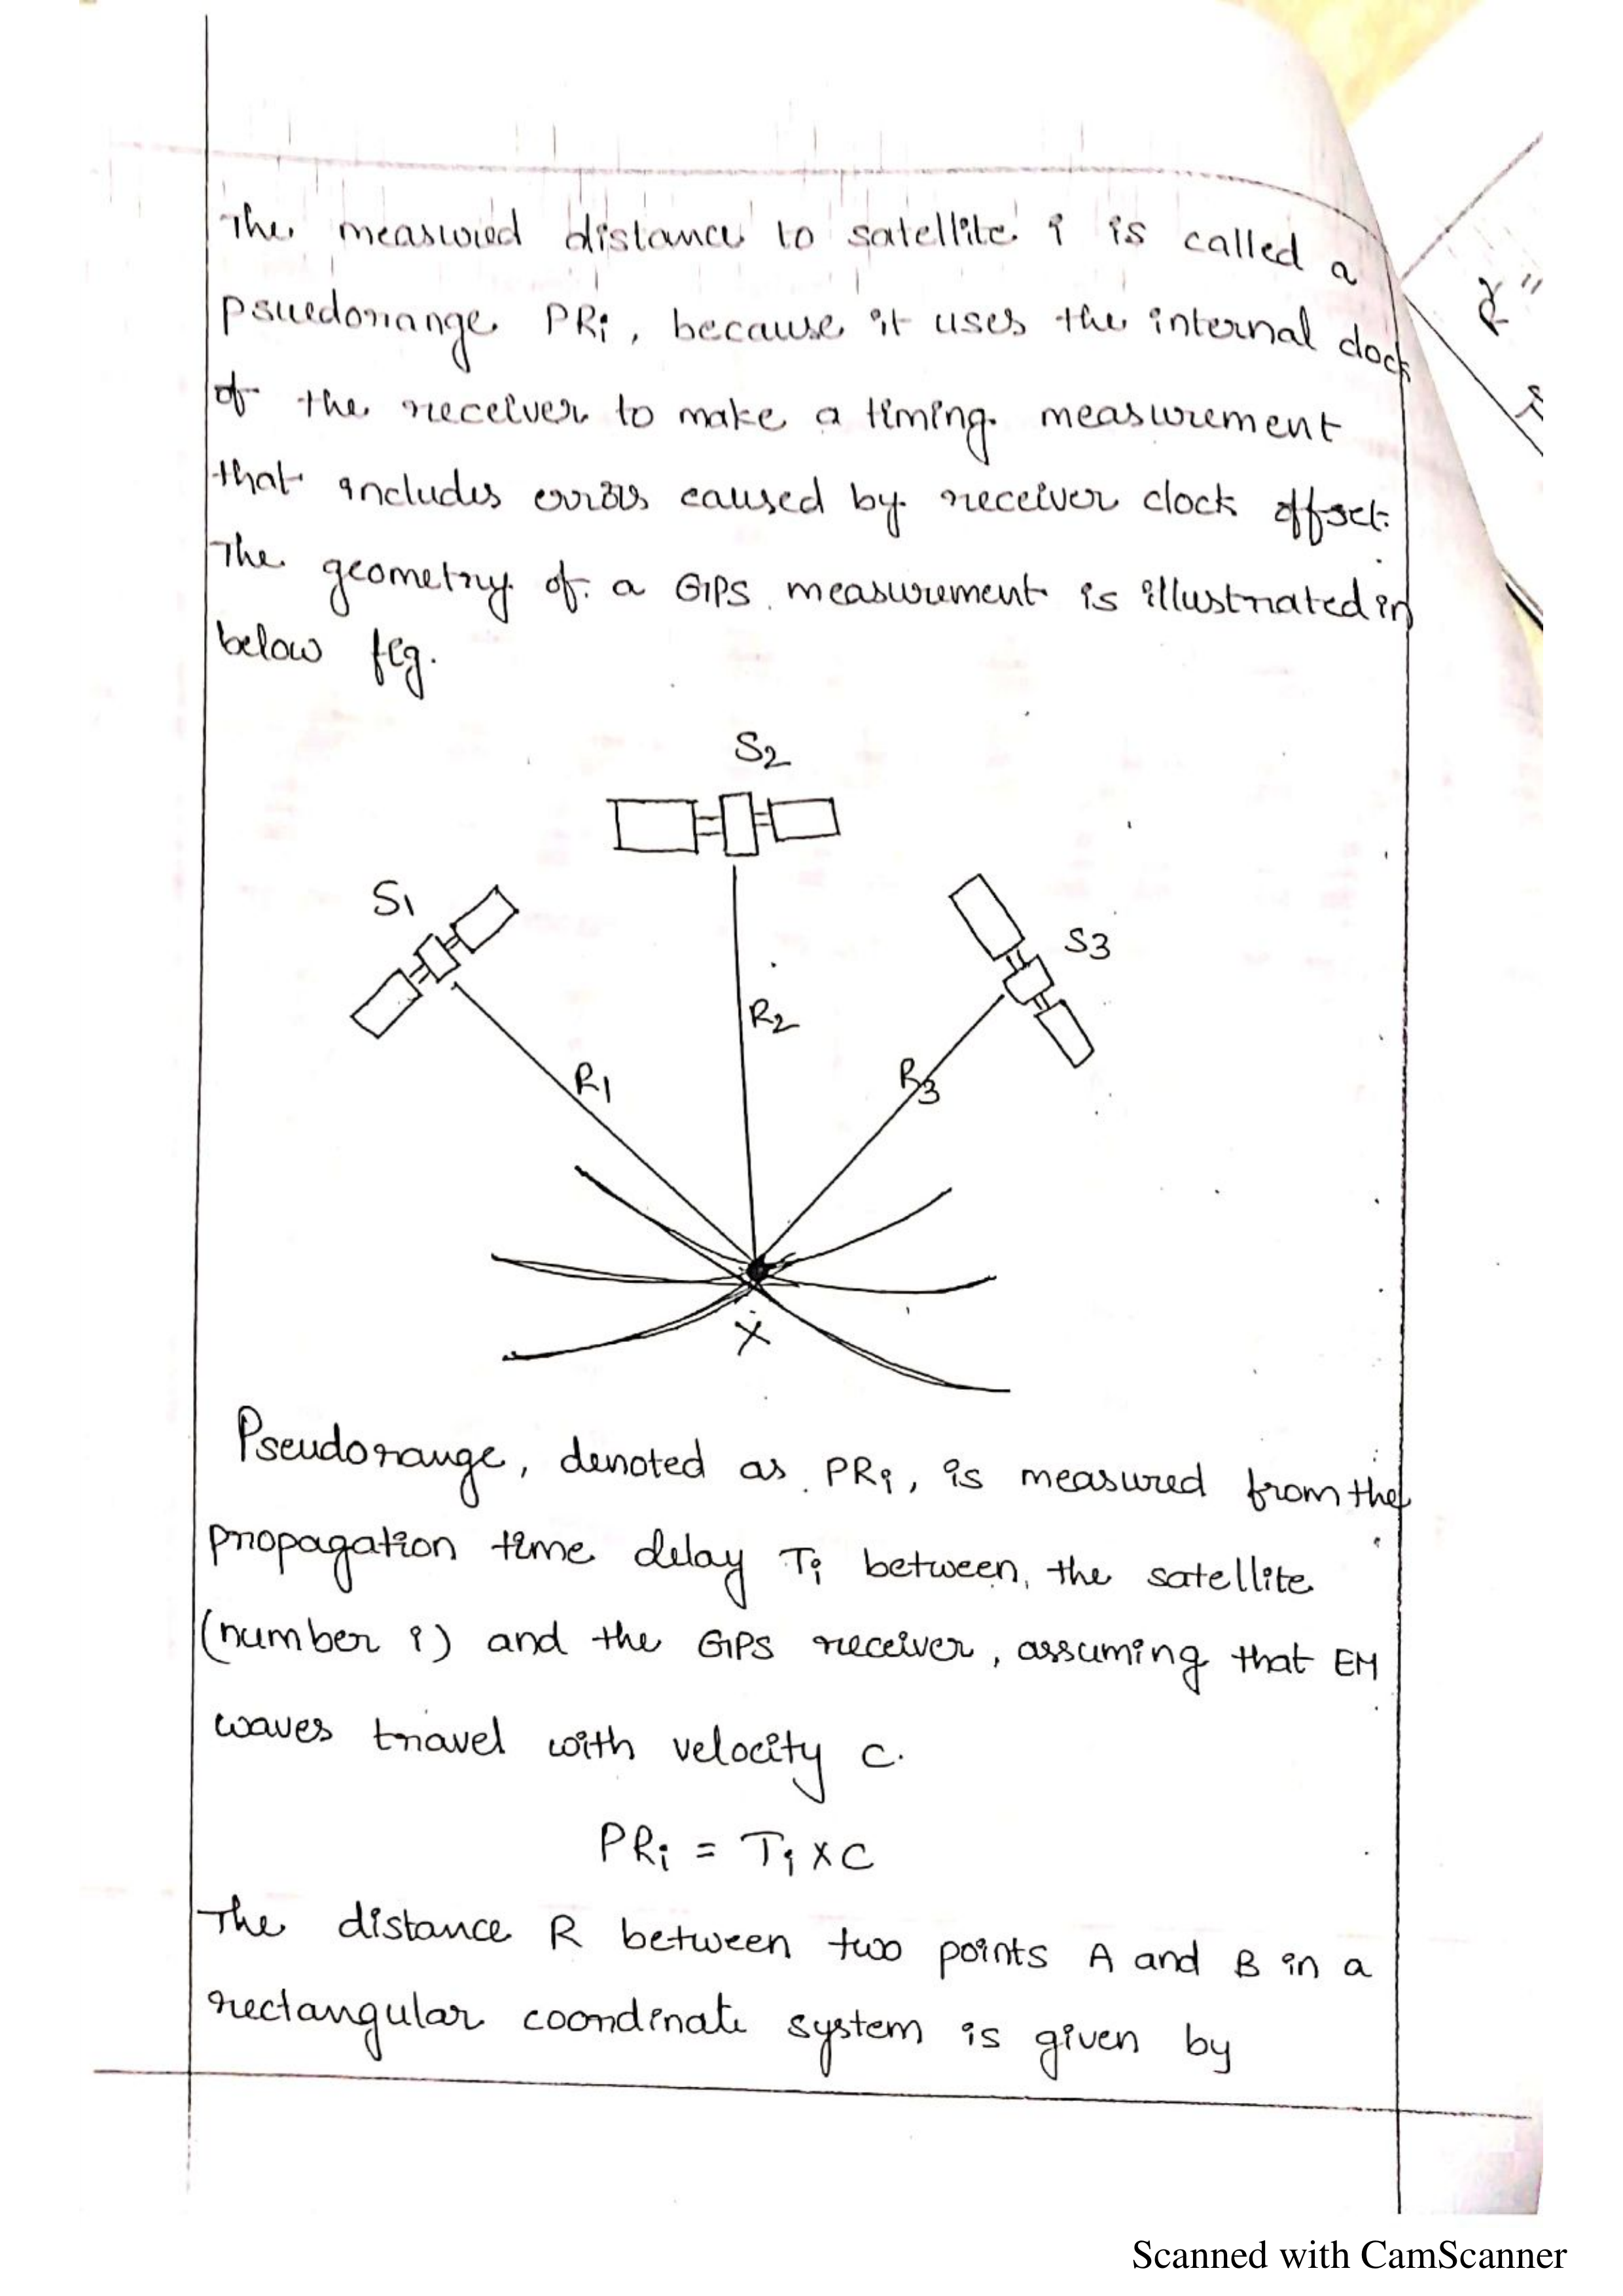 The measured distance to satellite i is called a
psuedorange PRi, because it uses the internal clock
of the receiver to make a timing measurement
that includes errors caused by receiver clock offset.
The geometry of a GPS measurement is illustrated in
below fig.
S2
S1
S3
R2
R1
R3
X
Pseudorange, denoted as PRi, is measured from the
propagation time delay Ti between, the satellite
(number i) and the GPS receiver, assuming that EM
waves travel with velocity C.
PRi = Ti x C
The distance R between two points A and B in a
rectangular coordinate system is given by
Scanned with CamScanner